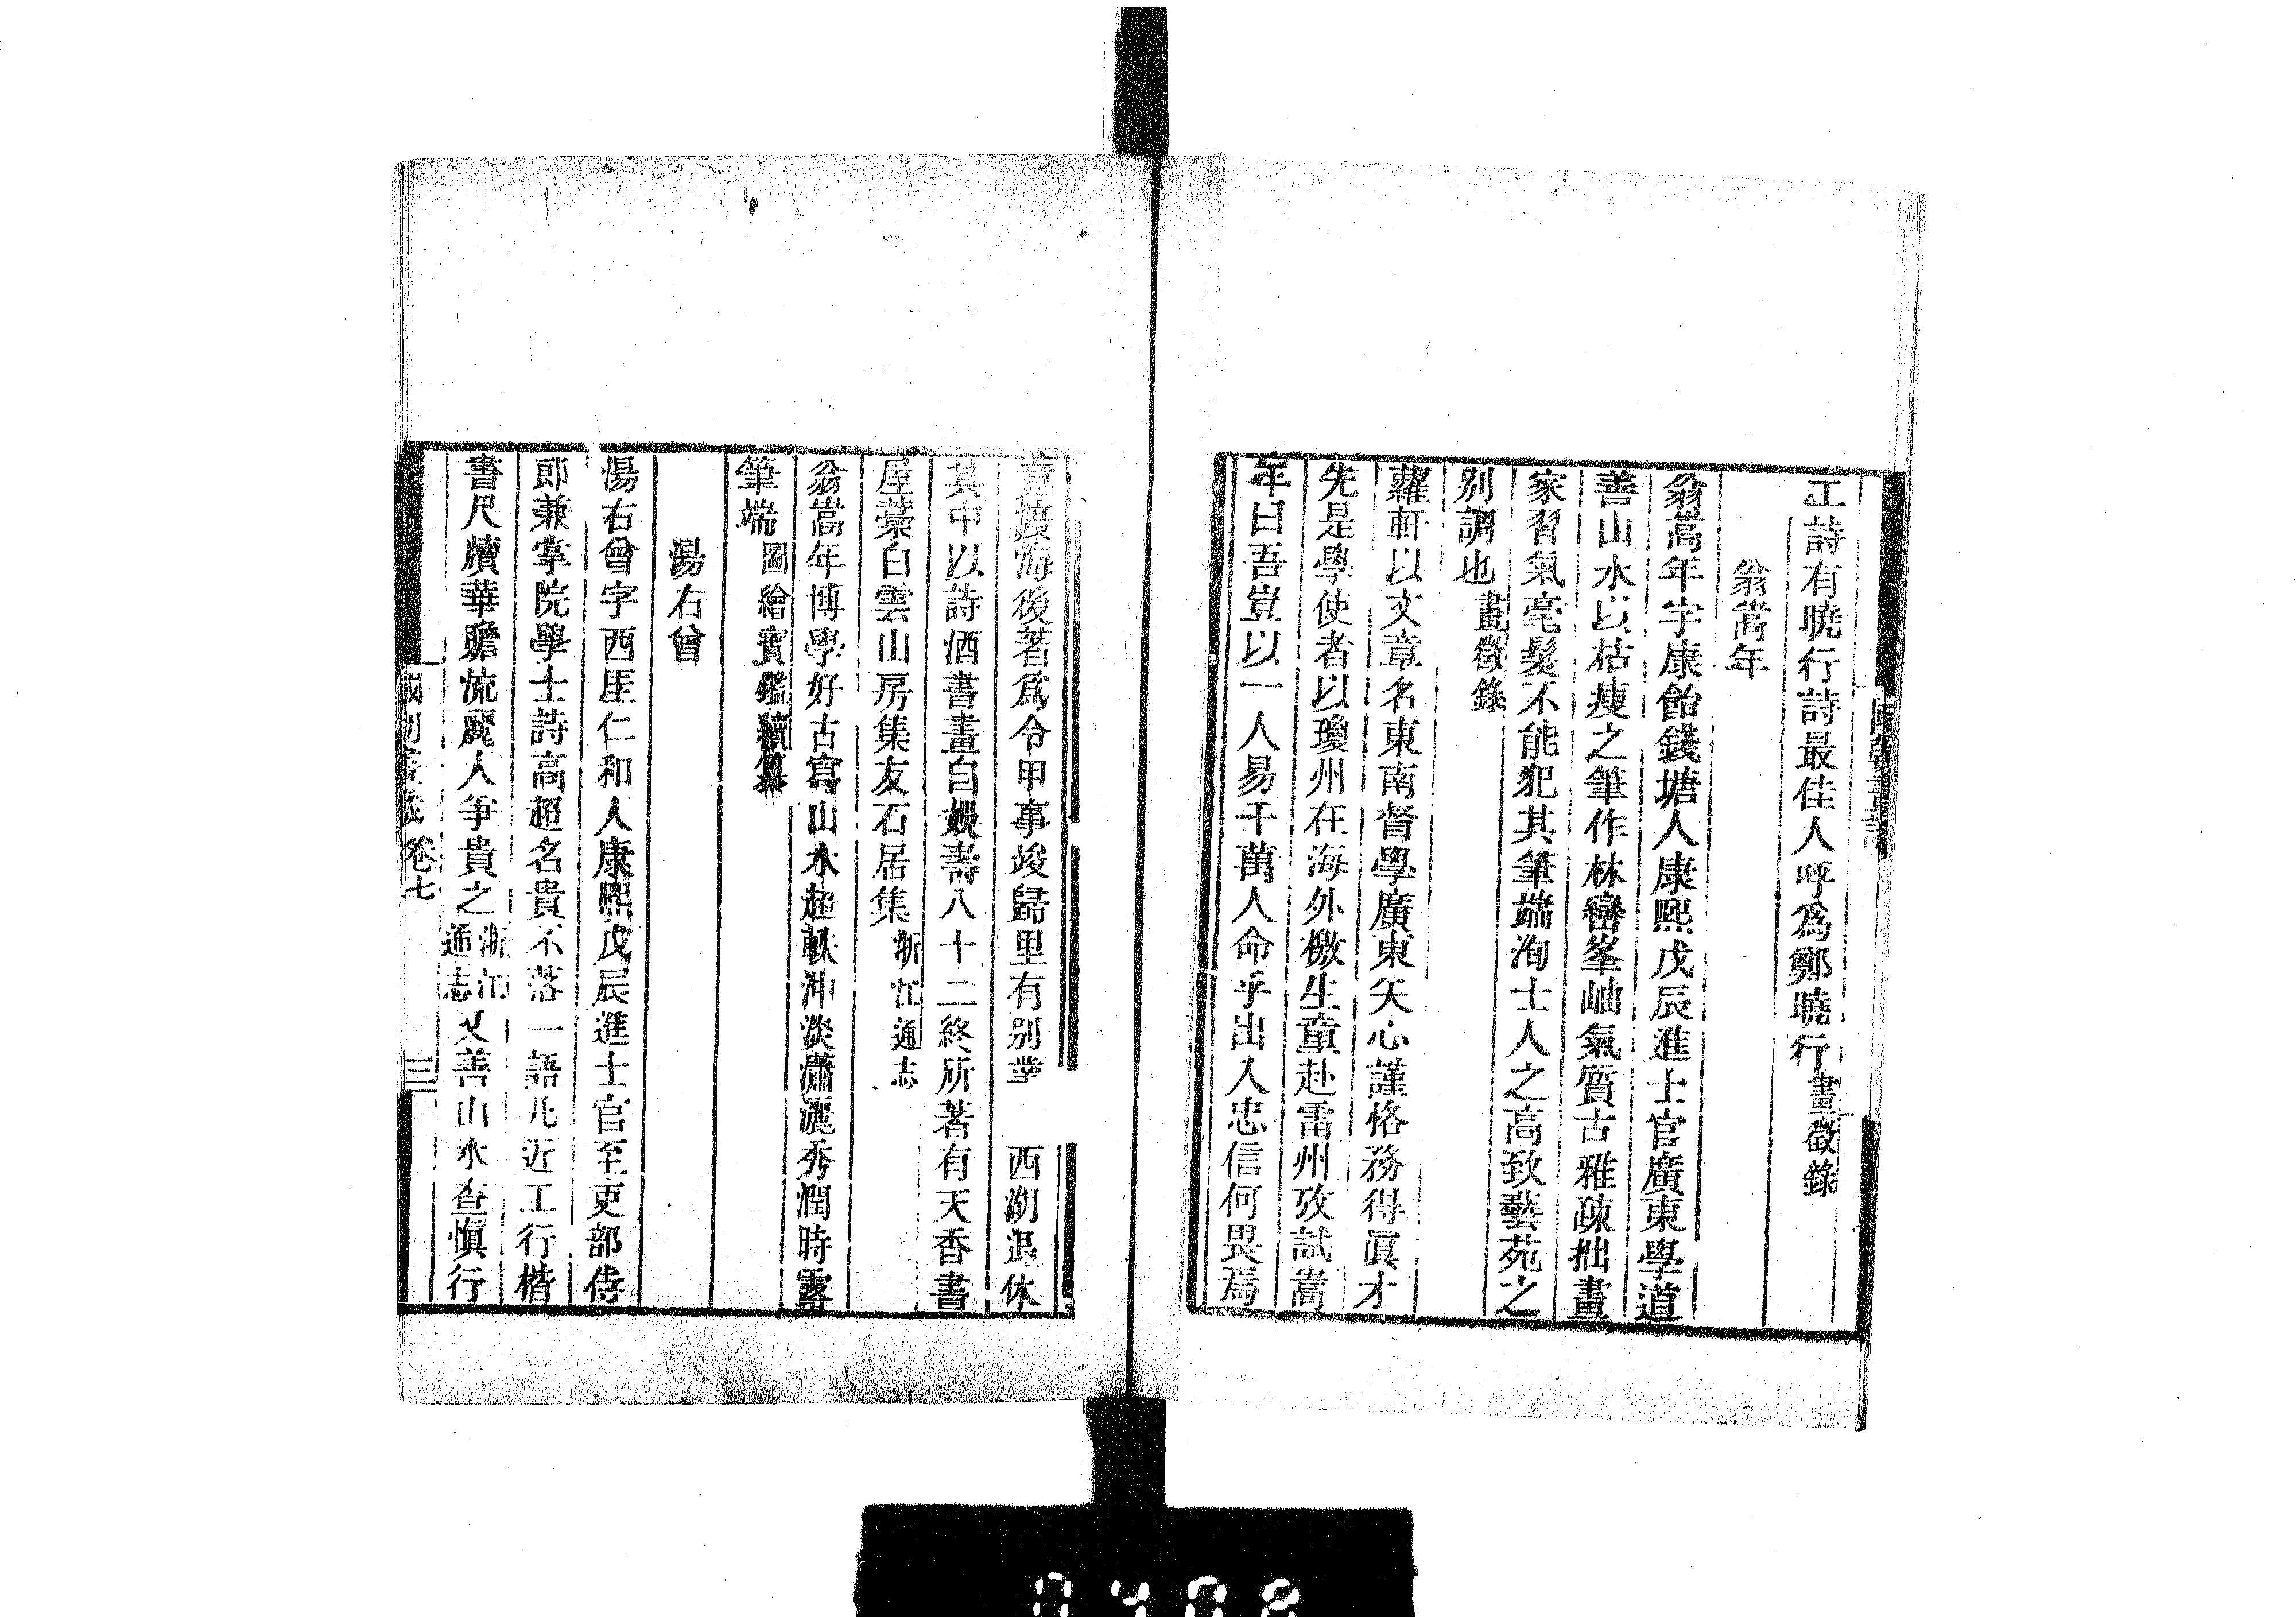 江詩有曉行詩最佳人呼爲鄭曉行畫徵錄
翁嵩年
翁嵩年字康飴錢塘人康熙戊辰進士官廣東學道
善山水以枯瘦之筆作林巒峯岫氣質古雅疎拙畫
家習氣毫髮不能犯其筆端洵士人之高致藝苑之
别調也畫徵錄
蘿軒以文章名東南督學廣東矢心謹恪務得眞才
先是學使者以瓊州在海外檄生童赴雷州攷試嵩
年曰吾豈以一人易千萬人命乎出入忠信何畏焉
渡海後著爲令甲事竣歸里有别 西湖退休
其中以詩酒書畫自娛壽八十二終所著有天香書
屋藁白雲山房集友石居集浙江通志
翁嵩年博學好古寫山水超軼沖淡瀟灑秀潤時露
筆端圖繪寶鑑續纂
湯右曾
湯右曾字西厓仁和人康熙戊辰進士官至吏部侍
郎兼掌院學士詩高超名貴不落一語凡近工行楷
書尺牘華贍流麗人爭貴之浙江通志又善山水查愼行
卷七
三
0408